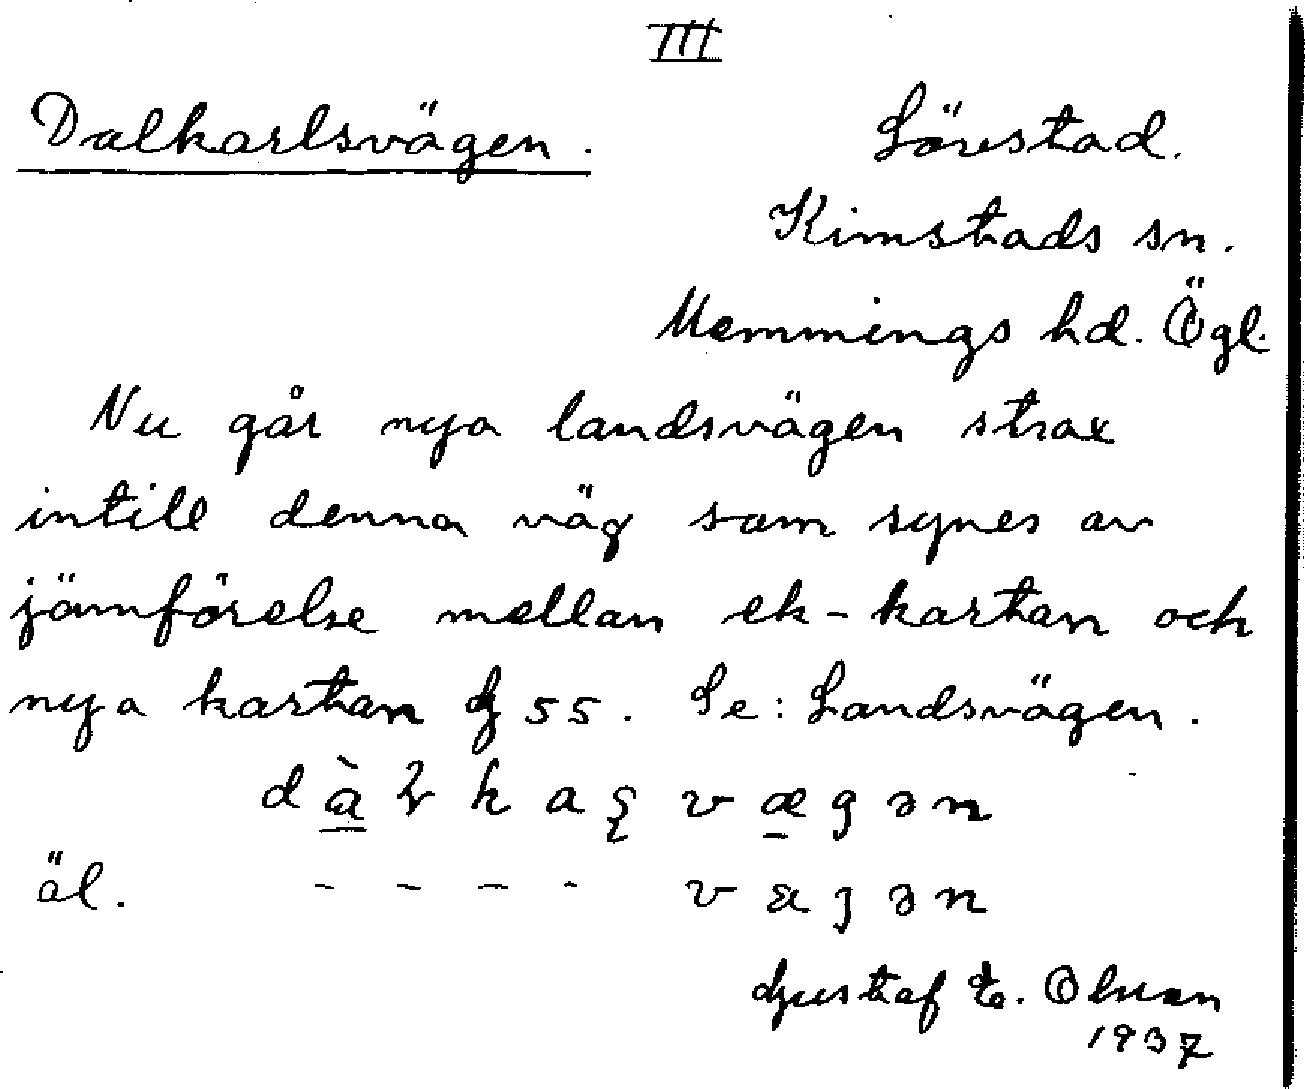 III
Dalkarlsvägen.
Lörstad.
Kimstads sn.
Memmings hd. Ögl.
Nu går nya landsvägen strax
intill denna väg som synes av
jämförelse mellan ek-kartan och
nya kartan 55. Se: Landsvägen.
vægən
äl. - - - - 
Gustaf E. Olsson
1937